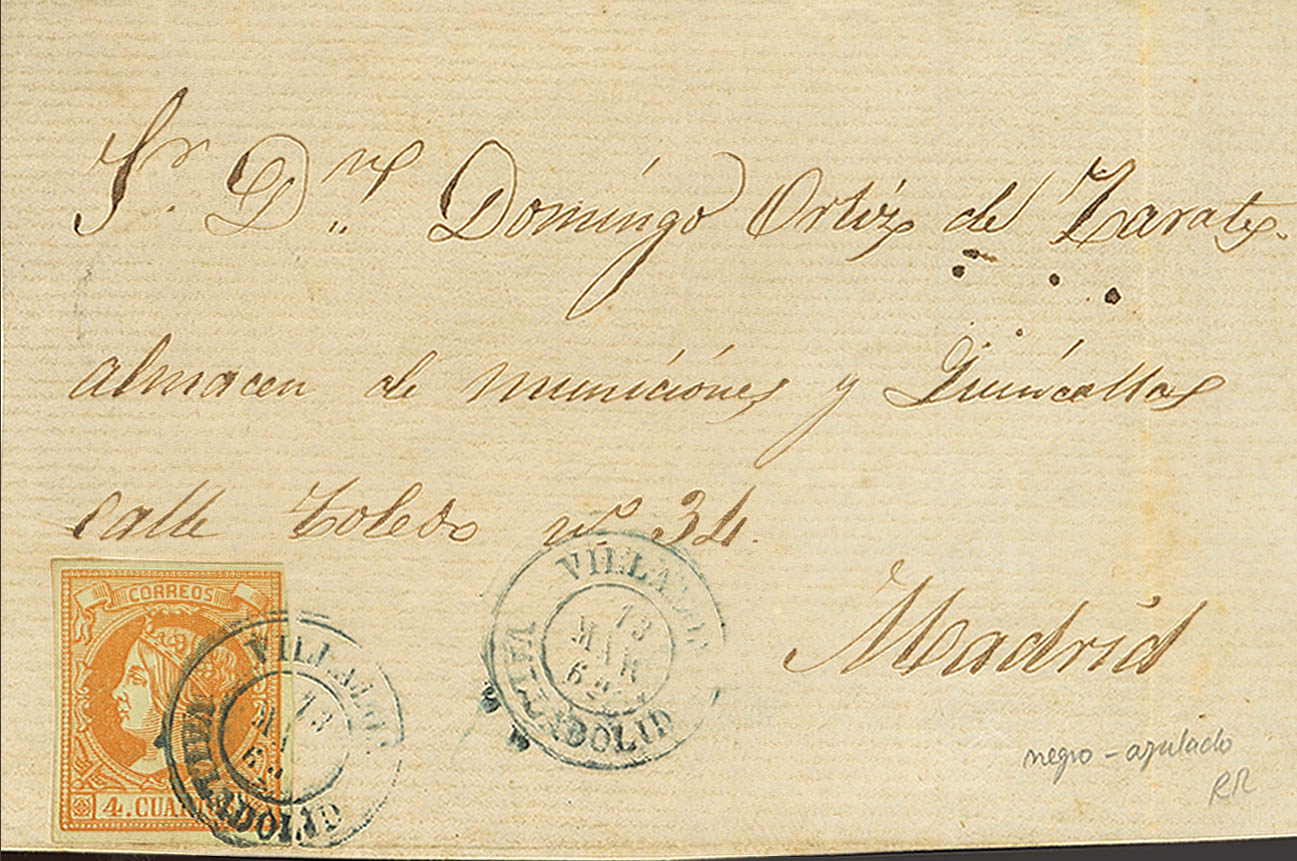 Sr. Dn. Domingo Ortiz de Zarate.
almacen de municiones y Quincallas
calle Toledo nº 34.
Madrid
CORREOS
4. CUAR
VILLALON
13
MAR
62
VALLADOLID
VILLALON
13
MAR
62
VALLADOLID
negro-azulado
RR